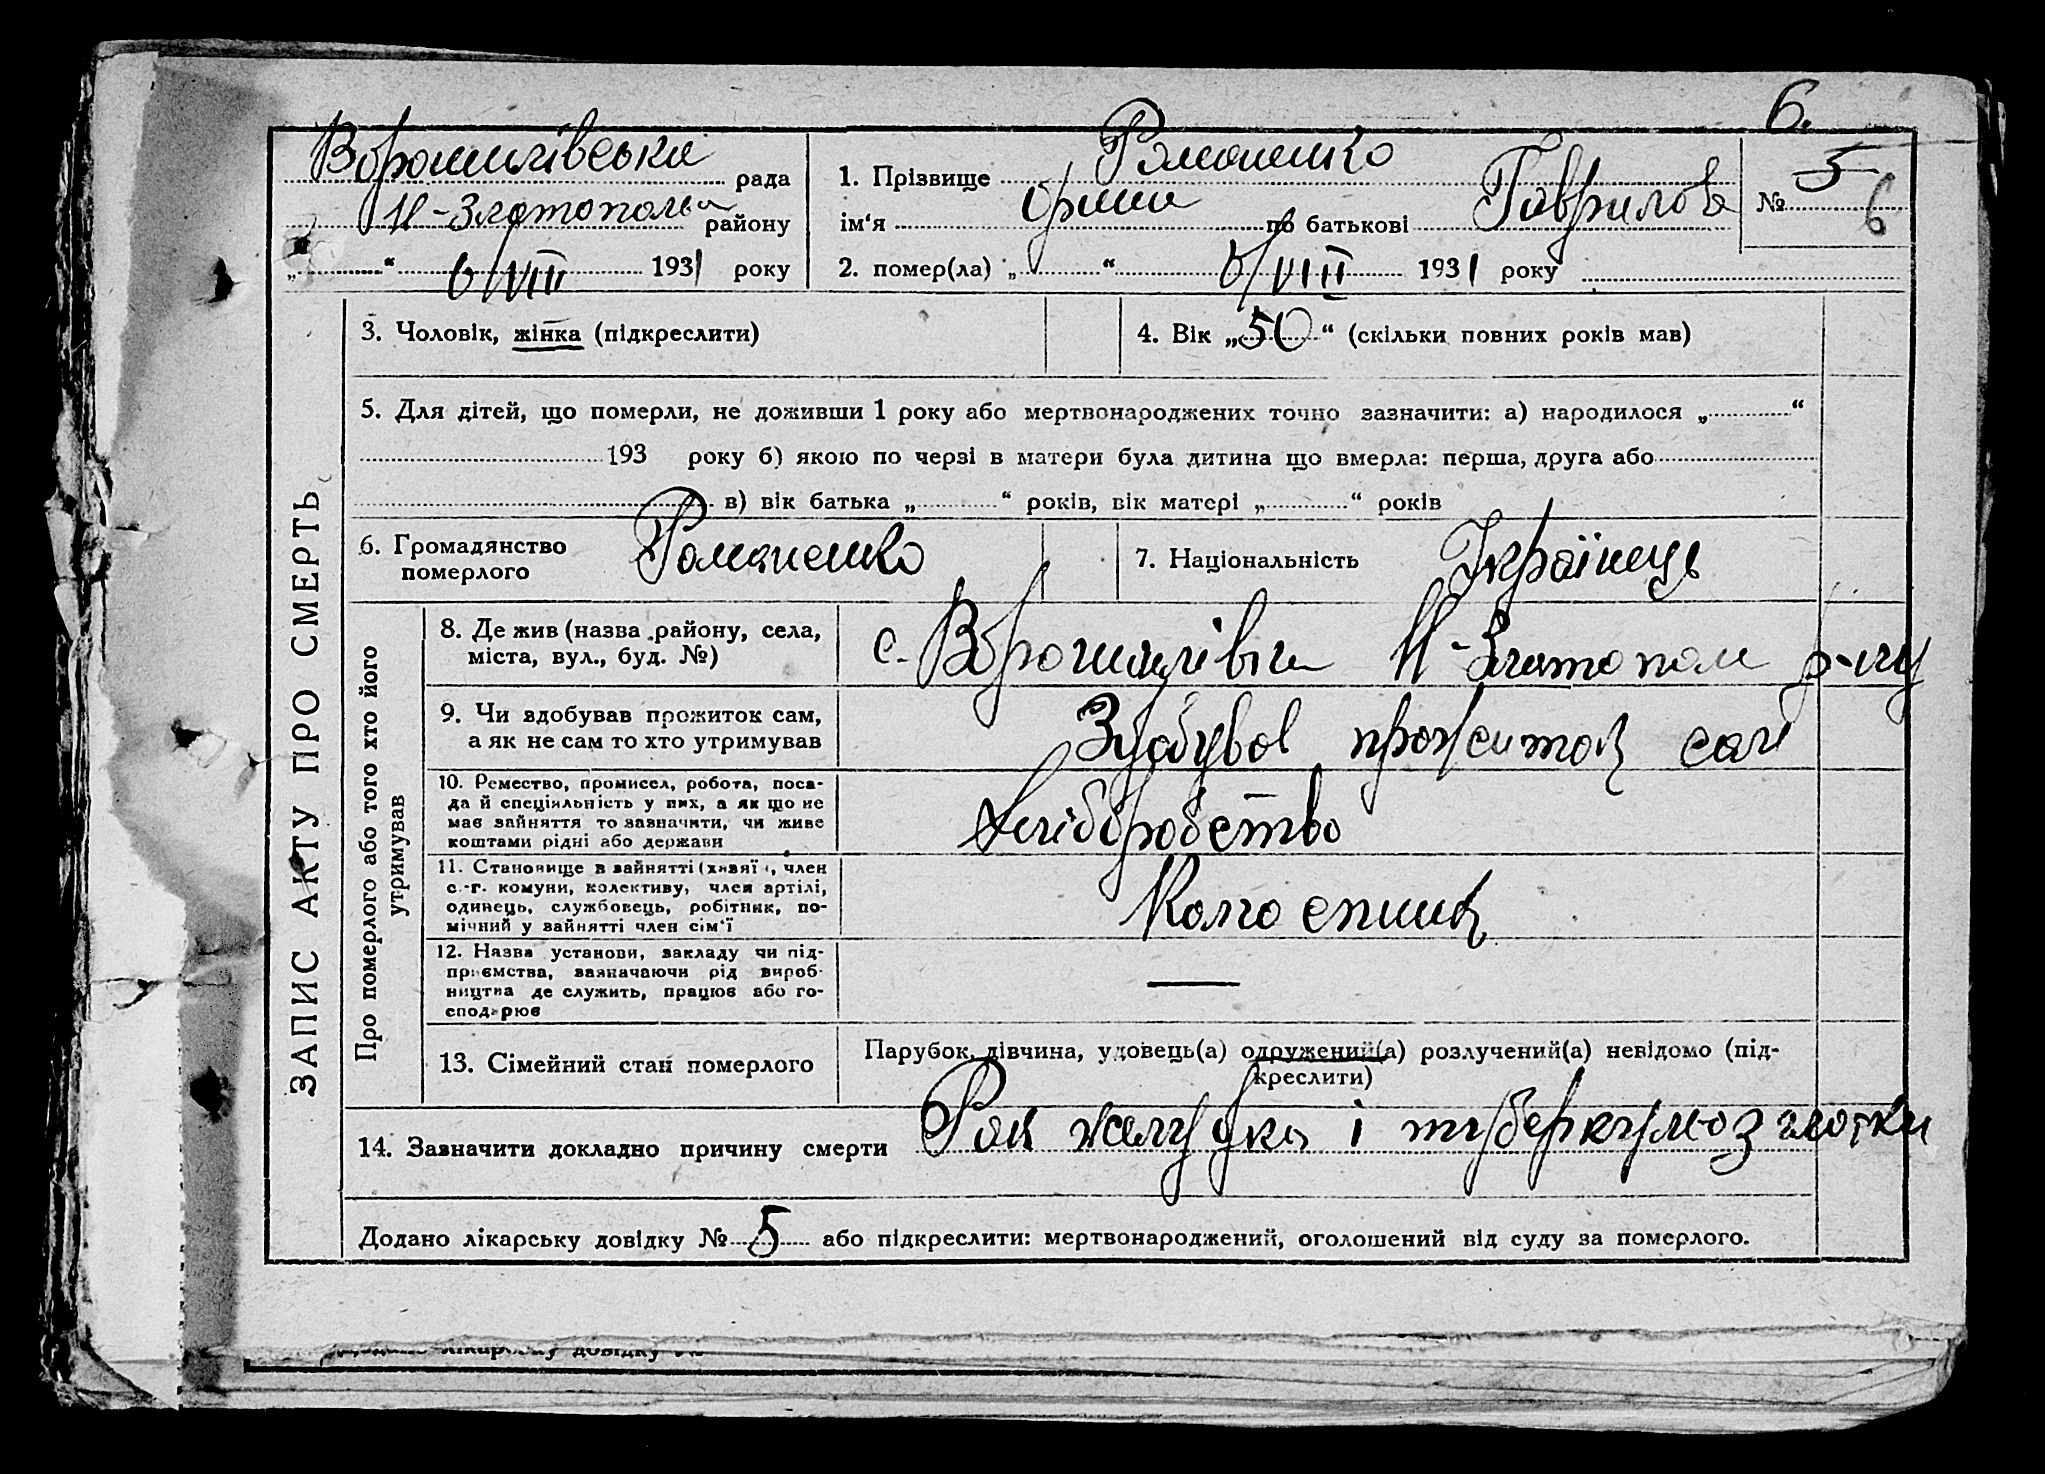 6.
Ворошилівська рада
Н-Златопольск району
„ “ 6/VIII 1931 року
1. Прізвище Романенко
ім‘я Орина по батькові Гаврилова
№ 5 6
2. помер(ла) „ “ 6/VIII 1931 року
ЗАПИС АКТУ ПРО СМЕРТЬ
3. Чоловік, жінка (підкреслити)
4. Вік „50“ (скільки повних років мав)
5. Для дітей, що померли, не доживши 1 року або мертвонароджених точно зазначити: а) народилося „ “
193 року б) якою по черзі в матери була дитина що вмерла: перша, друга або
в) вік батька „ “ років, вік матері „ “ років
6. Громадянство
померлого
Романенко
7. Національність Українець
Про померлого або того хто його
утримував
8. Де жив (назва району, села,
міста, вул., буд. №)
с. Ворошилівка Н-Златополь р-ну
9. Чи здобував прожиток сам,
а як не сам то хто утримував
Здобував прожиток сам
10. Ремество, промисел, робота, поса-
да й спеціяльність у них, а як що не
має зайняття то зазначити, чи живе
коштами рідні або держави
Хліборобство
11. Становище в зайнятті (хазяї , член
с.-г. комуни, колективу, член артілі,
одинець, службовець, робітник, по-
мічний у зайнятті член сім‘ї
Колгоспник
12. Назва установи, закладу чи під-
приємства, зазначаючи рід вироб-
ництва де служить, працює або го-
сподарює
—
13. Сімейний стан померлого
Парубок, дівчина, удовець(а) одружений(а) розлучений(а) невідомо (під-
креслити)
14. Зазначити докладно причину смерти Рак желудка і туберкульоз глотки
Додано лікарську довідку № 5 або підкреслити: мертвонароджений, оголошений від суду за померлого.